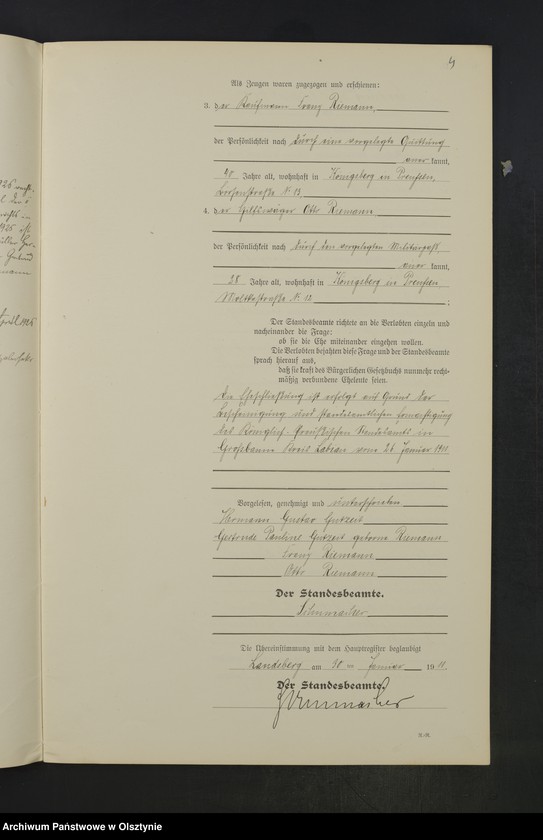 9
Als Zeugen waren zugezogen und erschienen:
3. der Kaufmann Franz Riemann,
der Persönlichkeit nach durch eine vorgelegte Quittung
anerkannt,
Jahre alt, wohnhaft in Königsberg in Preußen,
4. der Otto Riemann
der Persönlichkeit nach durch den vorgelegten Militärpaß
anerkannt,
28 Jahre alt, wohnhaft in Königsberg in Preußen
Moltkestraße № 12 ;
Der Standesbeamte richtete an die Verlobten einzeln und
nacheinander die Frage:
ob sie die Ehe miteinander eingehen wollen.
Die Verlobten bejahten diese Frage und der Standesbeamte
sprach hierauf aus,
daß sie kraft des Bürgerlichen Gesetzbuchs nunmehr recht-
mäßig verbundene Eheleute seien.
Die Eheschließung ist erfolgt auf Grund der
Bescheinigung und standesamtlichen Ermächtigung
des Königlich Preußischen Standesamts in
Großbaum Kreis Labiau vom 26. Januar 1911.
Vorgelesen, genehmigt und unterschrieben
Hermann Gustav Gutzeit
Pauline Gutzeit geborne Riemann
Franz Riemann
Otto Riemann
Der Standesbeamte.
Schumacher
Die Übereinstimmung mit dem Hauptregister beglaubigt
Landsberg am 30 ten Januar 1911.
Der Standesbeamte.
Schumacher
Archiwum Państwowe w Olsztynie